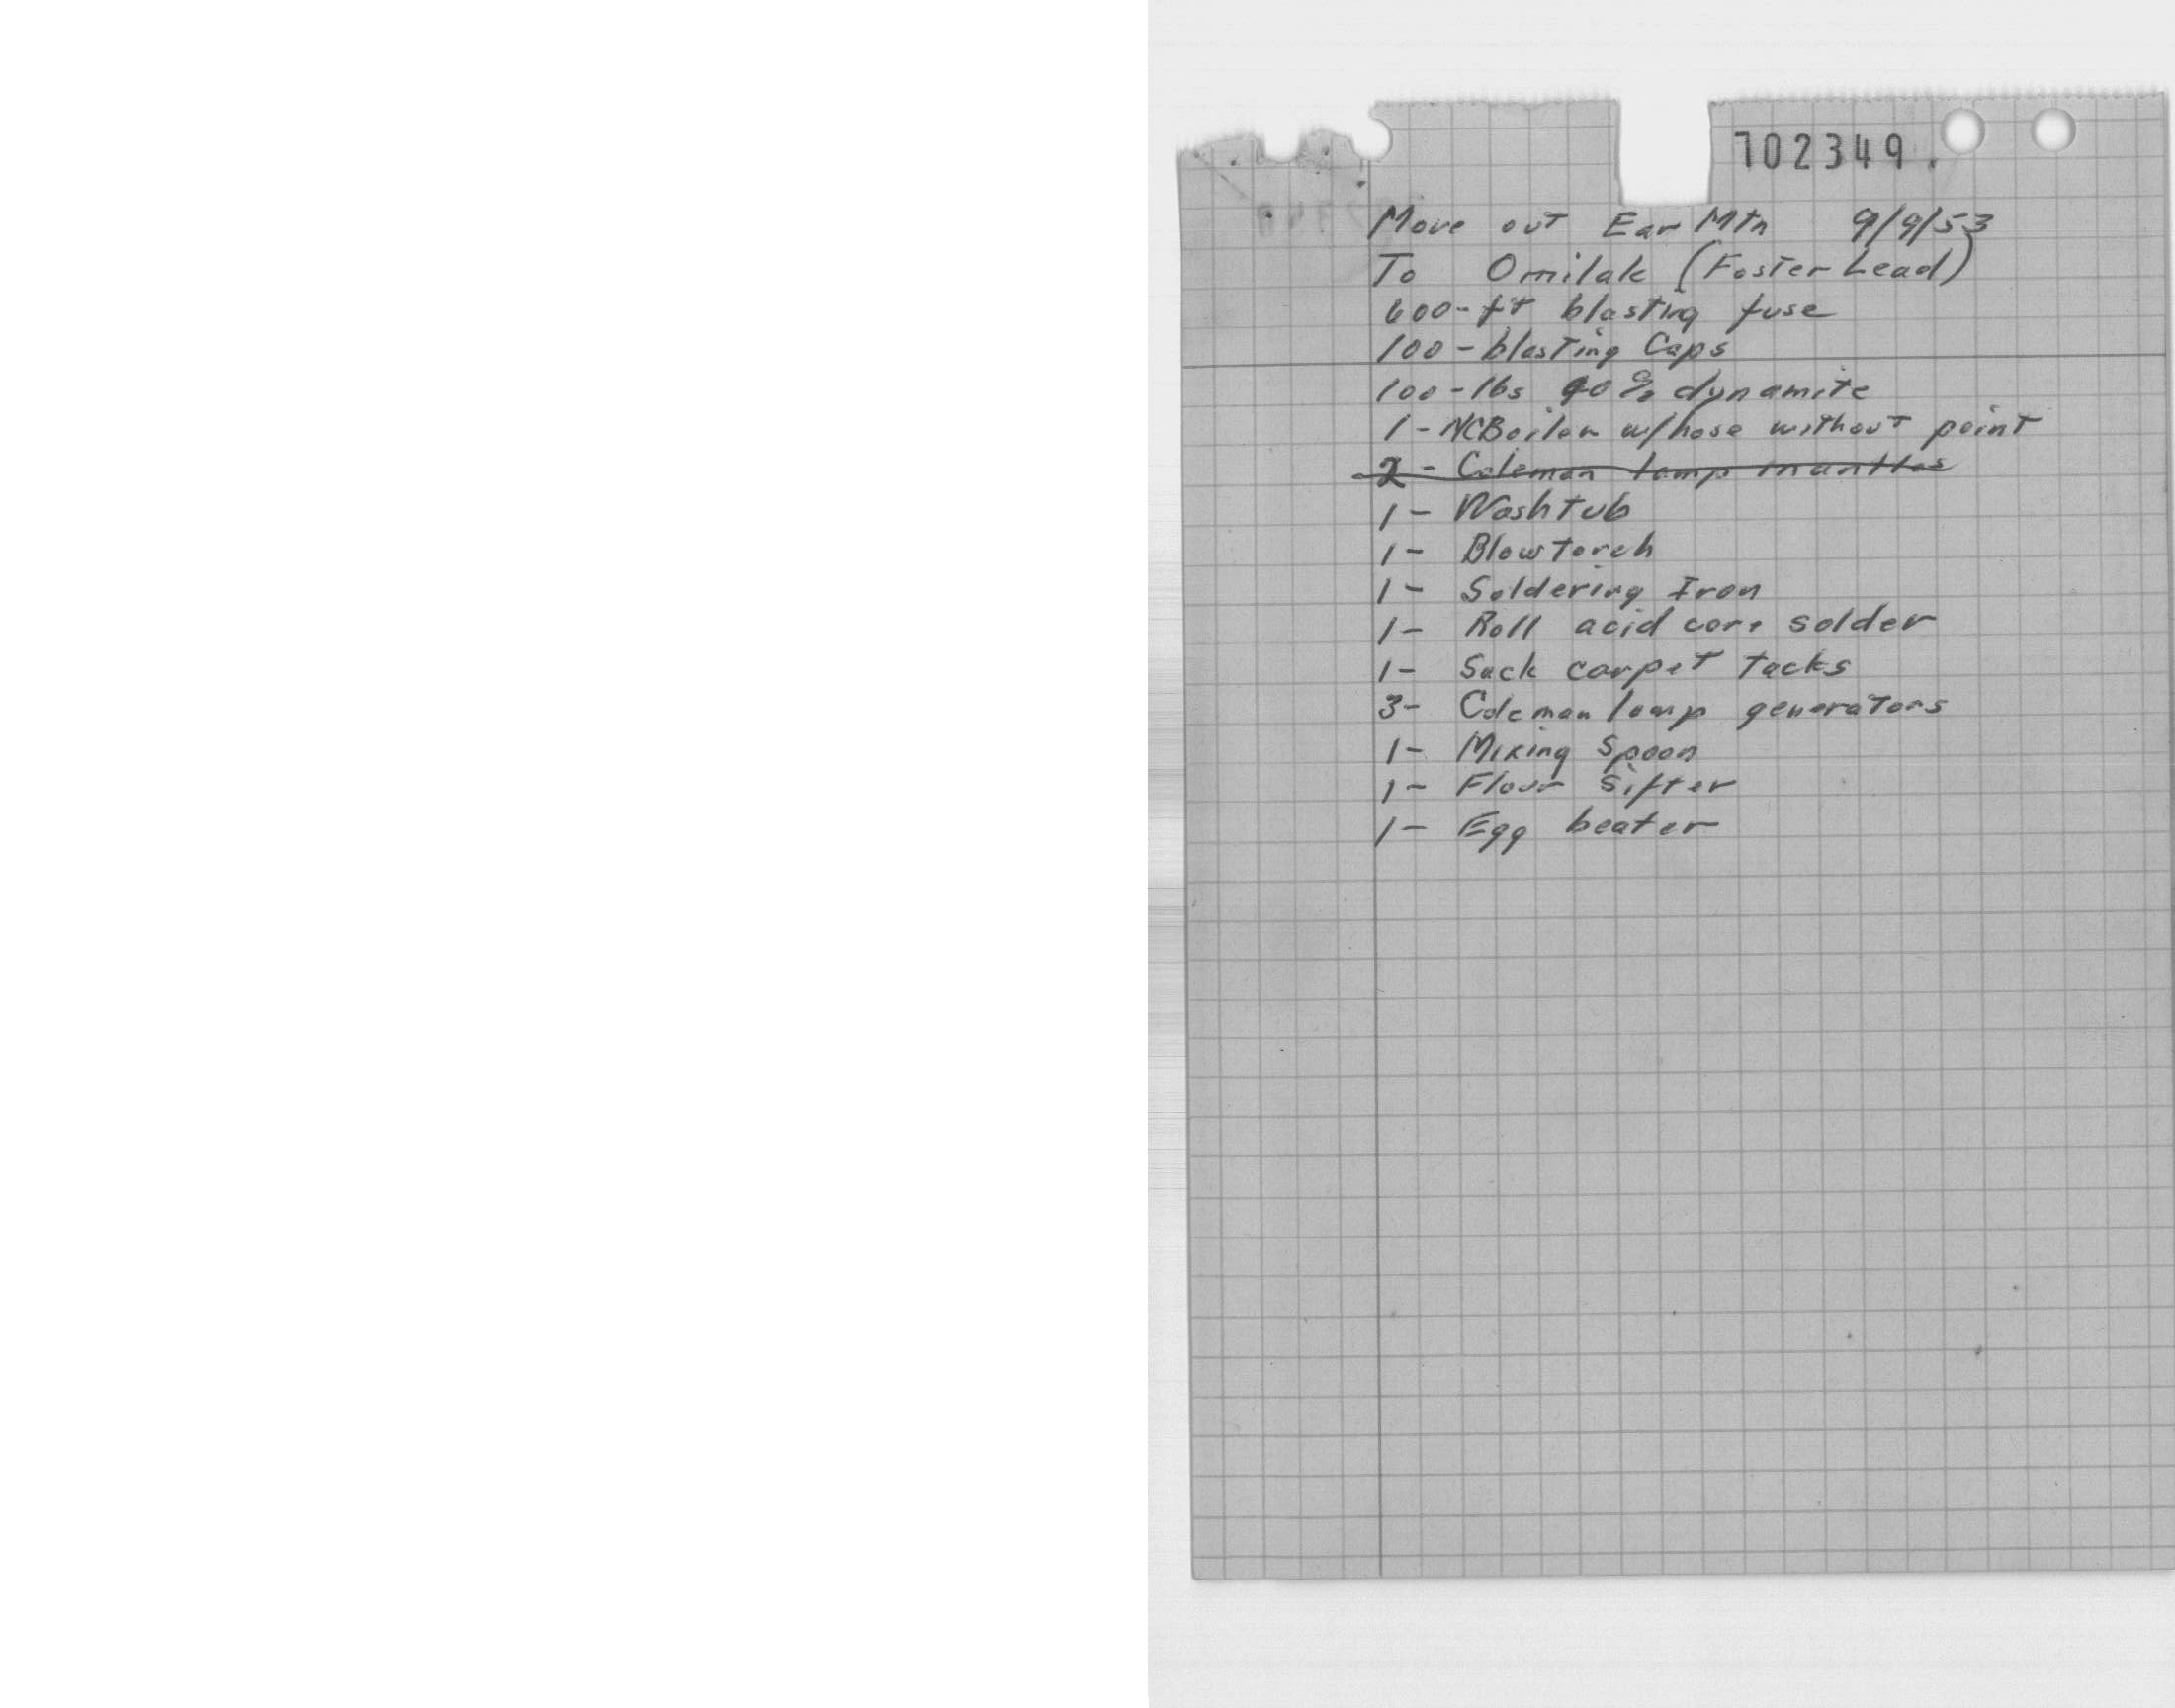 702349.
Move out Ear Mtn 9/9/53
To Omilak (Foster Lead)
600-ft blasting fuse
100-blasting Caps
100-lbs % dynamite
1-NCBoiler w/hose without point
2- Coleman lamp mantles
1- Washtub
1- Blowtorch
1- Soldering Iron
1- Roll acid core solder
1- Sack carpet tacks
3- Coleman lamp generators
1- Mixing Spoon
1- Flour Sifter
1- Egg beater